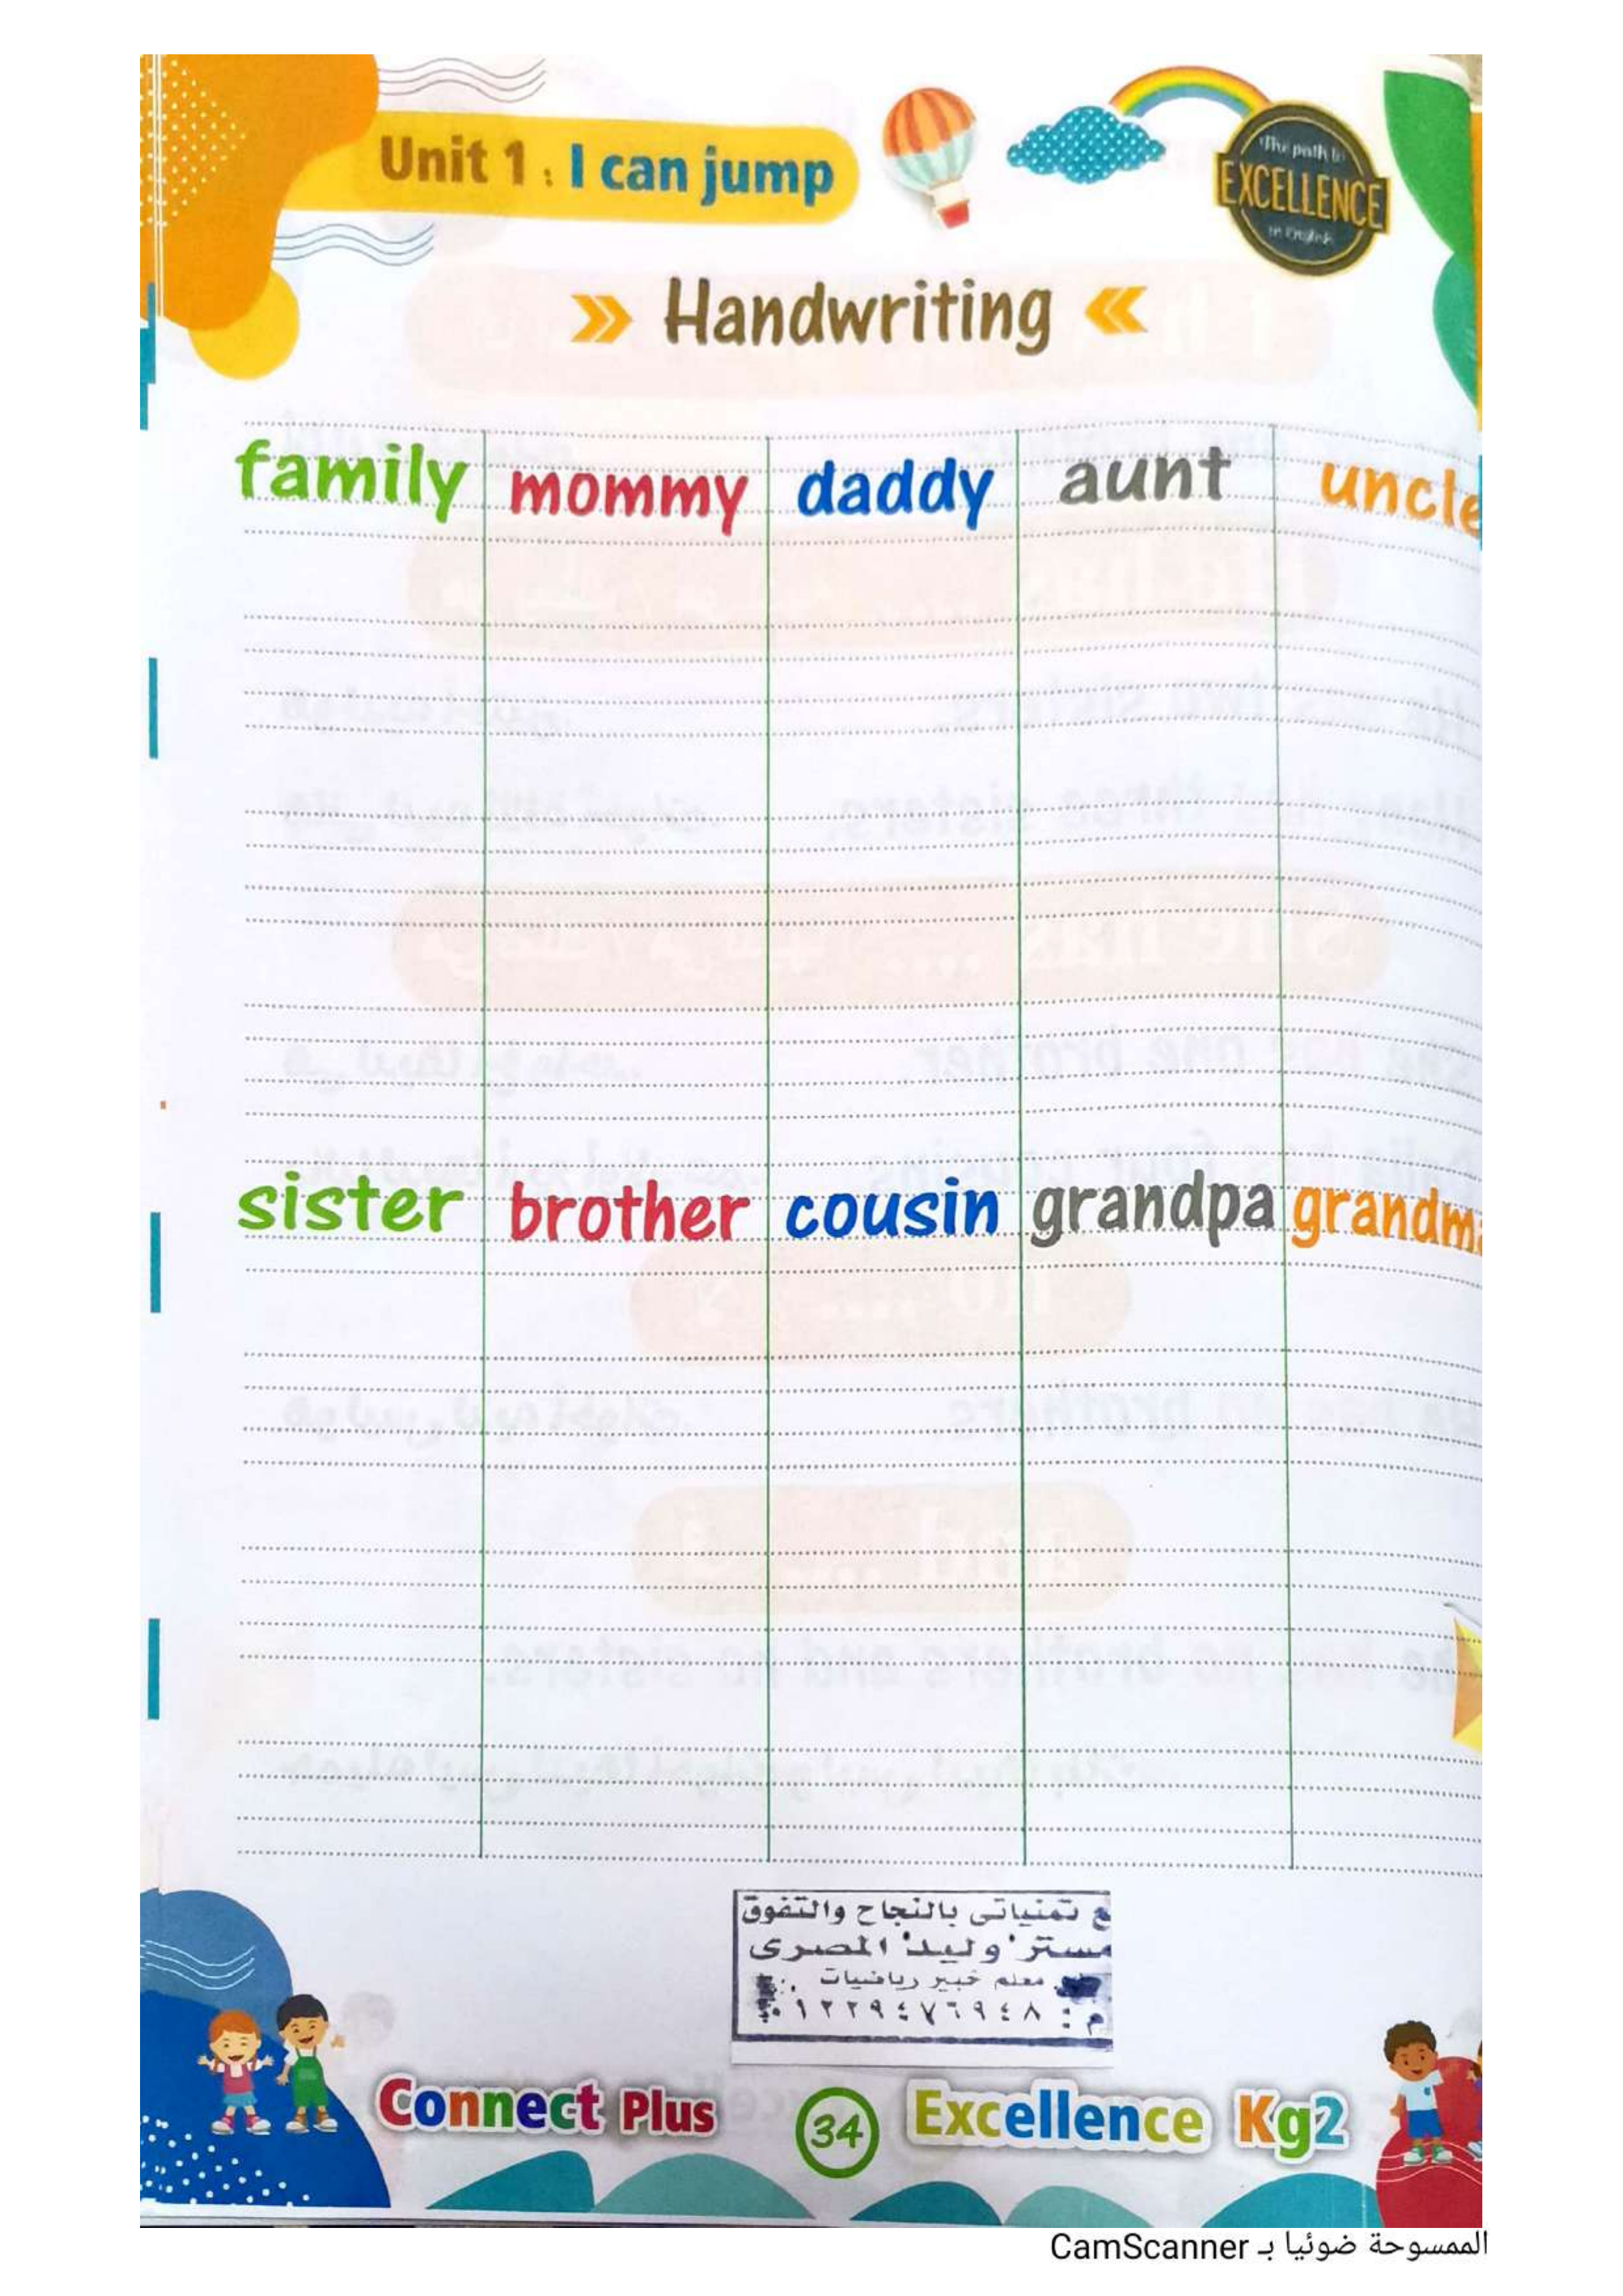 Unit 1 : I can jump
The path to
EXCELLENCE
in English
Handwriting
family mommy daddy aunt uncle
sister brother cousin grandpa grandma
ع تمنياتى بالنجاح والتفوق
مستر وليد المصرى
معلم خبير رياضيات
م : ٠١٢٢٩٤٧٦٩٤٨
Connect Plus 34 Excellence Kg2
الممسوحة ضوئيا بـ CamScanner